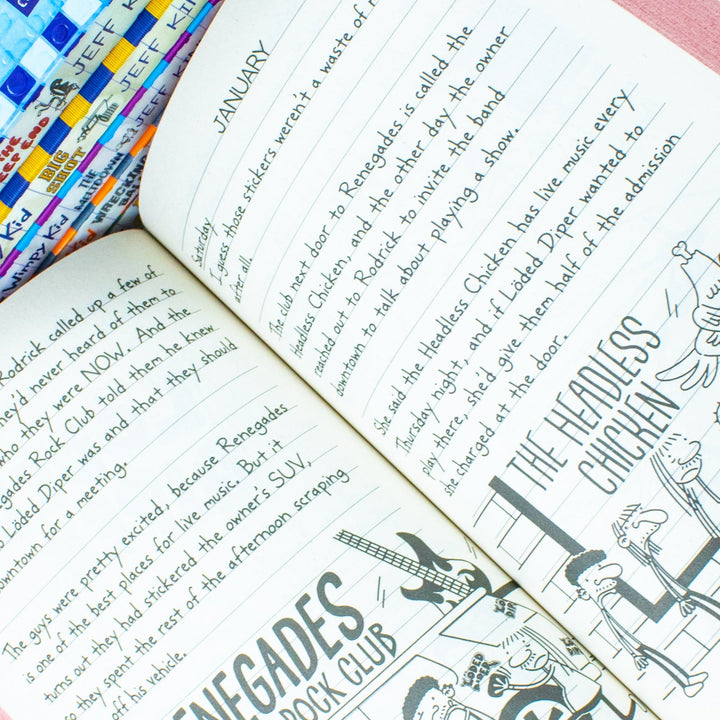 JEFF KI
JEFF KIN
JEFF KI
JEFF KI
THE
DEEP END
BIG
SHOT
THE
MELTDOWN
WRECKING
Kid
Kid
Wimpy Kid
Rodrick called up a few of
they'd never heard of them to
who they were NOW. And the
Renegades Rock Club told them he knew
Löded Diper was and that they should
downtown for a meeting.
The guys were pretty excited, because Renegades
is one of the best places for live music. But it
turns out they had stickered the owner's SUV,
so they spent the rest of the afternoon scraping
off his vehicle.
RENEGADES
ROCK CLUB
LÖDED
DIPER
LÖDED
DIPER
JANUARY
Saturday
I guess those stickers weren't a waste of
after all.
The club next door to Renegades is called the
Headless Chicken, and the other day the owner
reached out to Rodrick to invite the band
downtown to talk about playing a show.
She said the Headless Chicken has live music every
Thursday night, and if Löded Diper wanted to
play there, she'd give them half of the admission
she charged at the door.
THE HEADLESS
CHICKEN